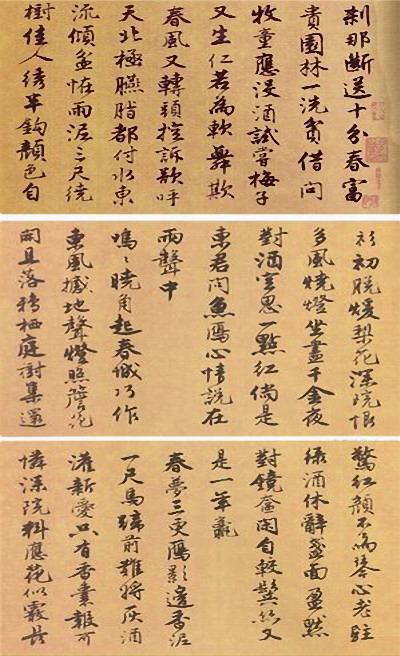 刹那断送十分春富
貴園林一洗貧借问
牧童應没酒試嘗梅子
又生仁若為軟舞欺
春風又轉頭控訴欲呼
天北極臙脂都付水東
流傾盆怪雨泥三尺繞
樹佳人绣半鈎顏色自
衫初脱煖梨花深院恨
多風燒燈坐盡千金夜
對酒空思一點紅倘是
東君问魚鴈心情說在
雨聲中
嗚嗚曉角起春城巧作
東風撼地聲燈照簷花
開且落鴉栖庭树集還
驚紅顏不為琴心老駐
绿酒休辭盞面盈默
對鏡奩閑自較鬓絲又
是一年贏
春夢三更鴈影邊香泥
一尺馬蹄前難將灰酒
灌新愛只有香囊報可
憐深院料應花似霰長